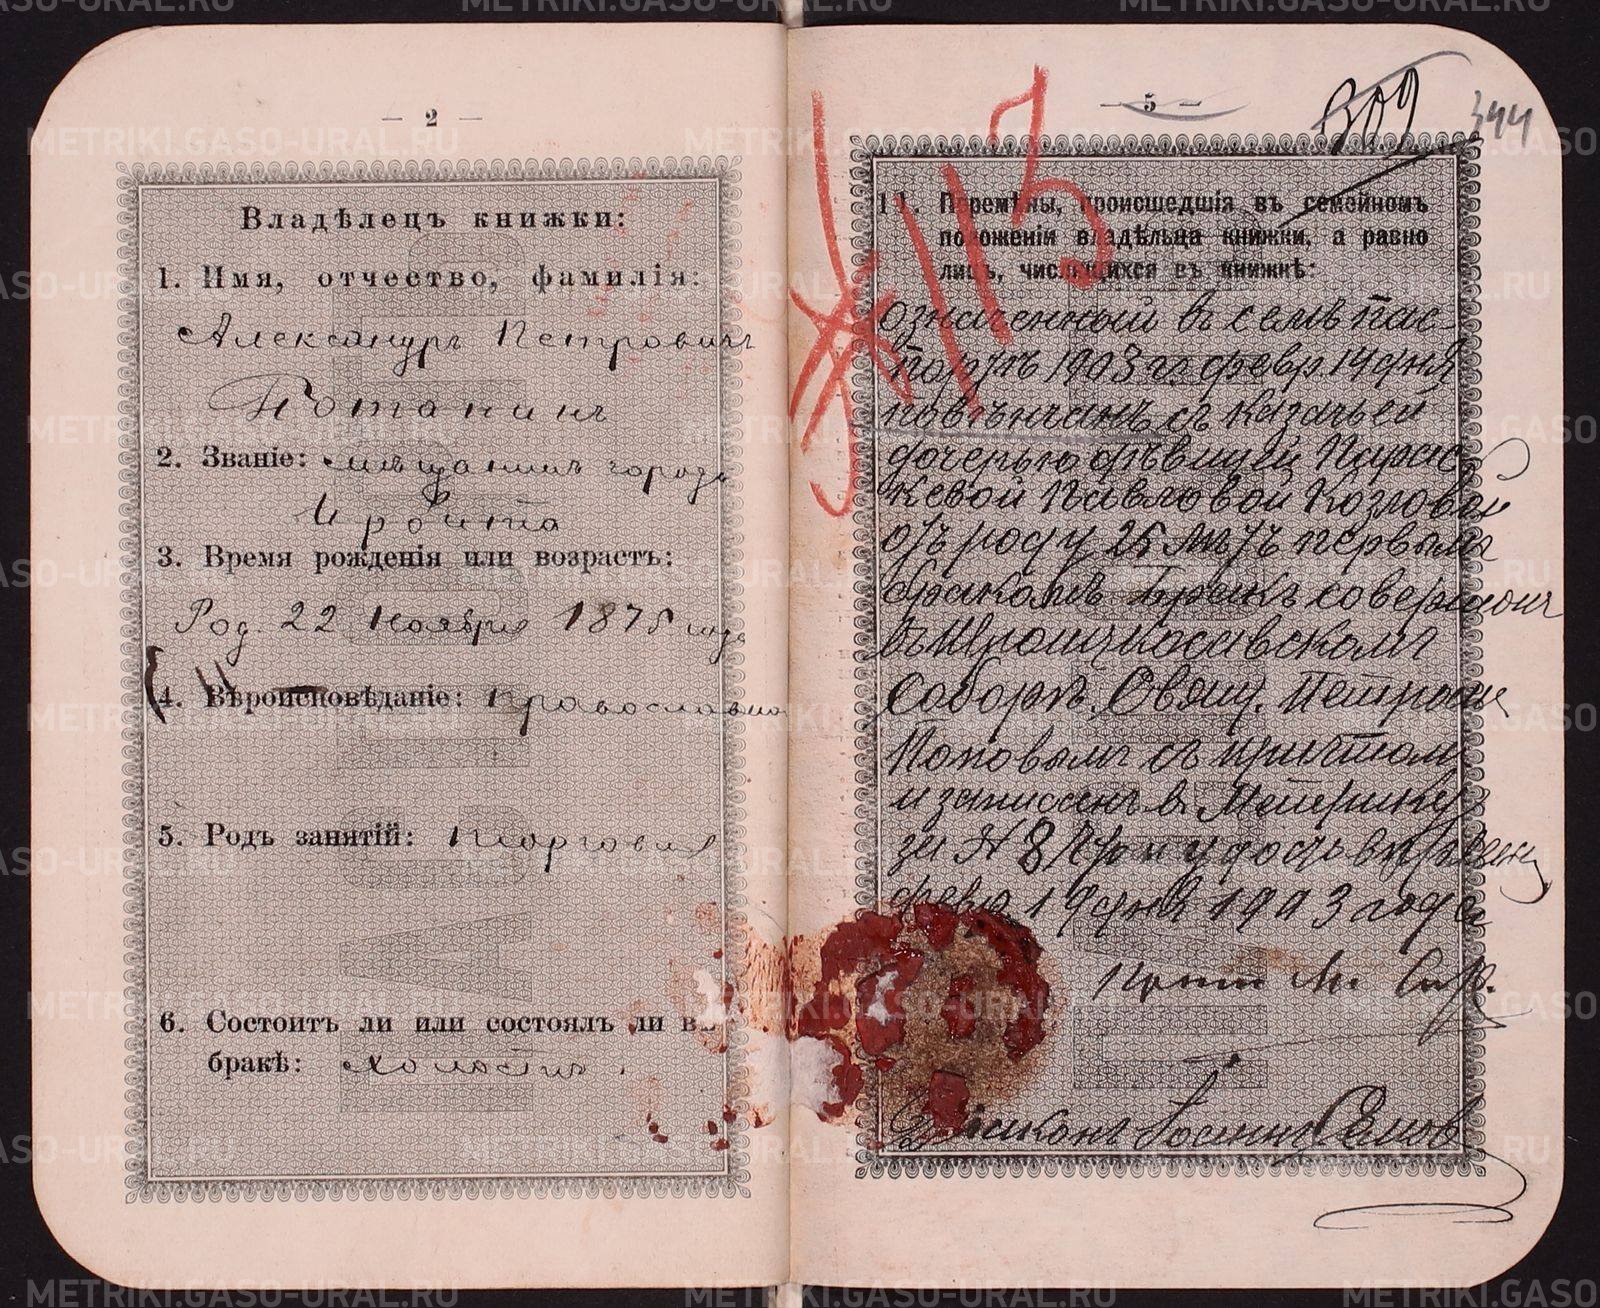 — 2 —
Владѣлецъ книжки:
1. Имя, отчество, фамилія:
Александръ Петровичъ
Потанинъ
2. Званіе: мѣщанинъ города
Ирбита
3. Время рожденія или возрастъ:
Род. 22 Ноября 1875 года
4. Вѣроисповѣданіе: Православное
5. Родъ занятій: Торговля
6. Состоитъ ли или состоялъ ли въ
бракѣ: холостъ.
— 5 —
309
344
№ 113
11. Перемѣны, происшедшія въ семейномъ
положеніи владѣльца книжки, а равно
лицъ, числящихся въ книжкѣ:
означенный въ семъ пас-
портѣ 1903 г. февр 14 дня
повѣнчанъ съ казачьей
дочерью дѣвицей Парас
кевой Павловой Козловой
отъ роду 25 лѣтъ первымъ
бракомъ Бракъ совершонъ
въ Троицкосавскомъ
Соборѣ Свящ. Петромъ
Поповымъ съ причтомъ
и записанъ в. Метрику
за № 8
февр 19 дня 1903 года
Діаконъ Іоаннъ
METRIKI.GASO-URAL.RU